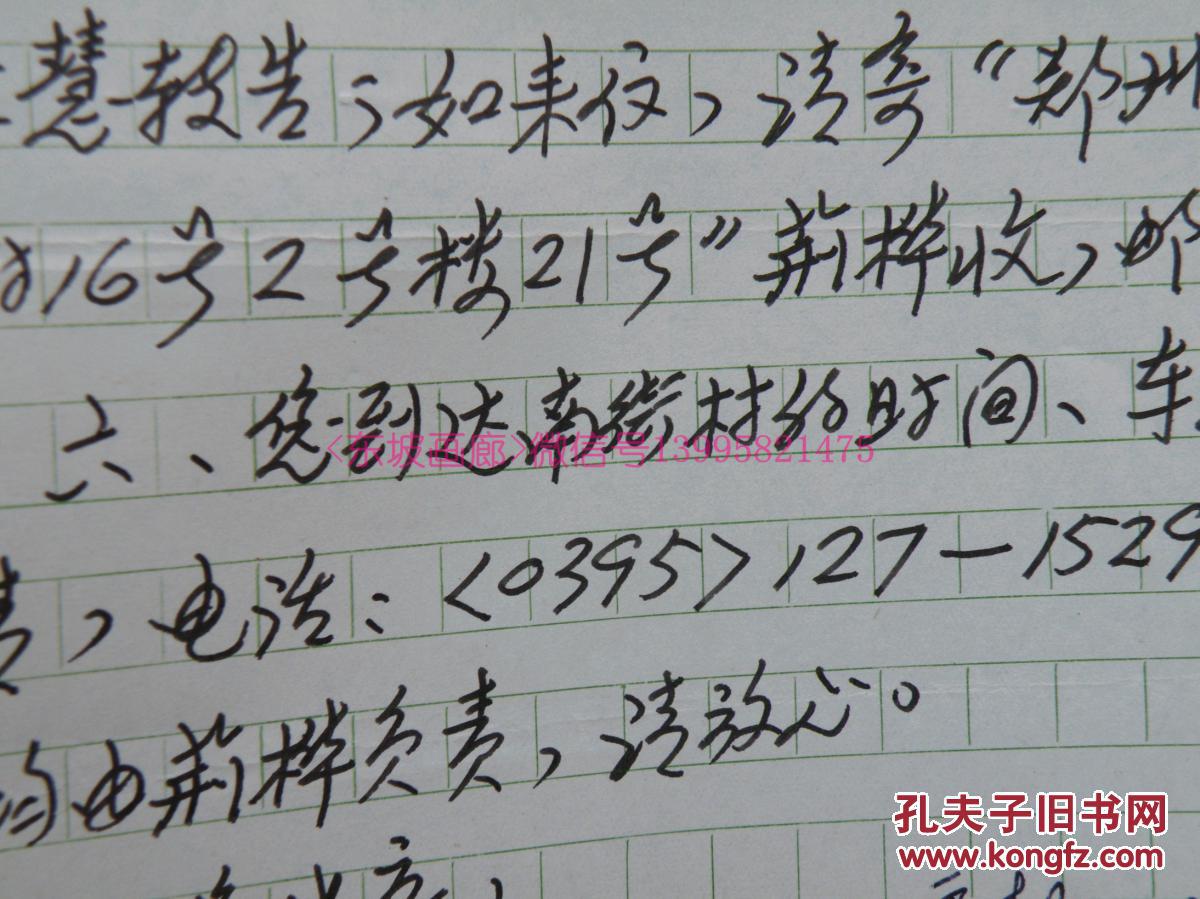 慧报告;如来仪,请寄“郑州
16号2号楼21号”荆桦收,邮
六、您到达南街村的时间、车
<东坡画廊>微信号13995821475
,电话:<0395>127—1529
均由荆桦负责,请放心。
孔夫子旧书网
www.kongfz.com